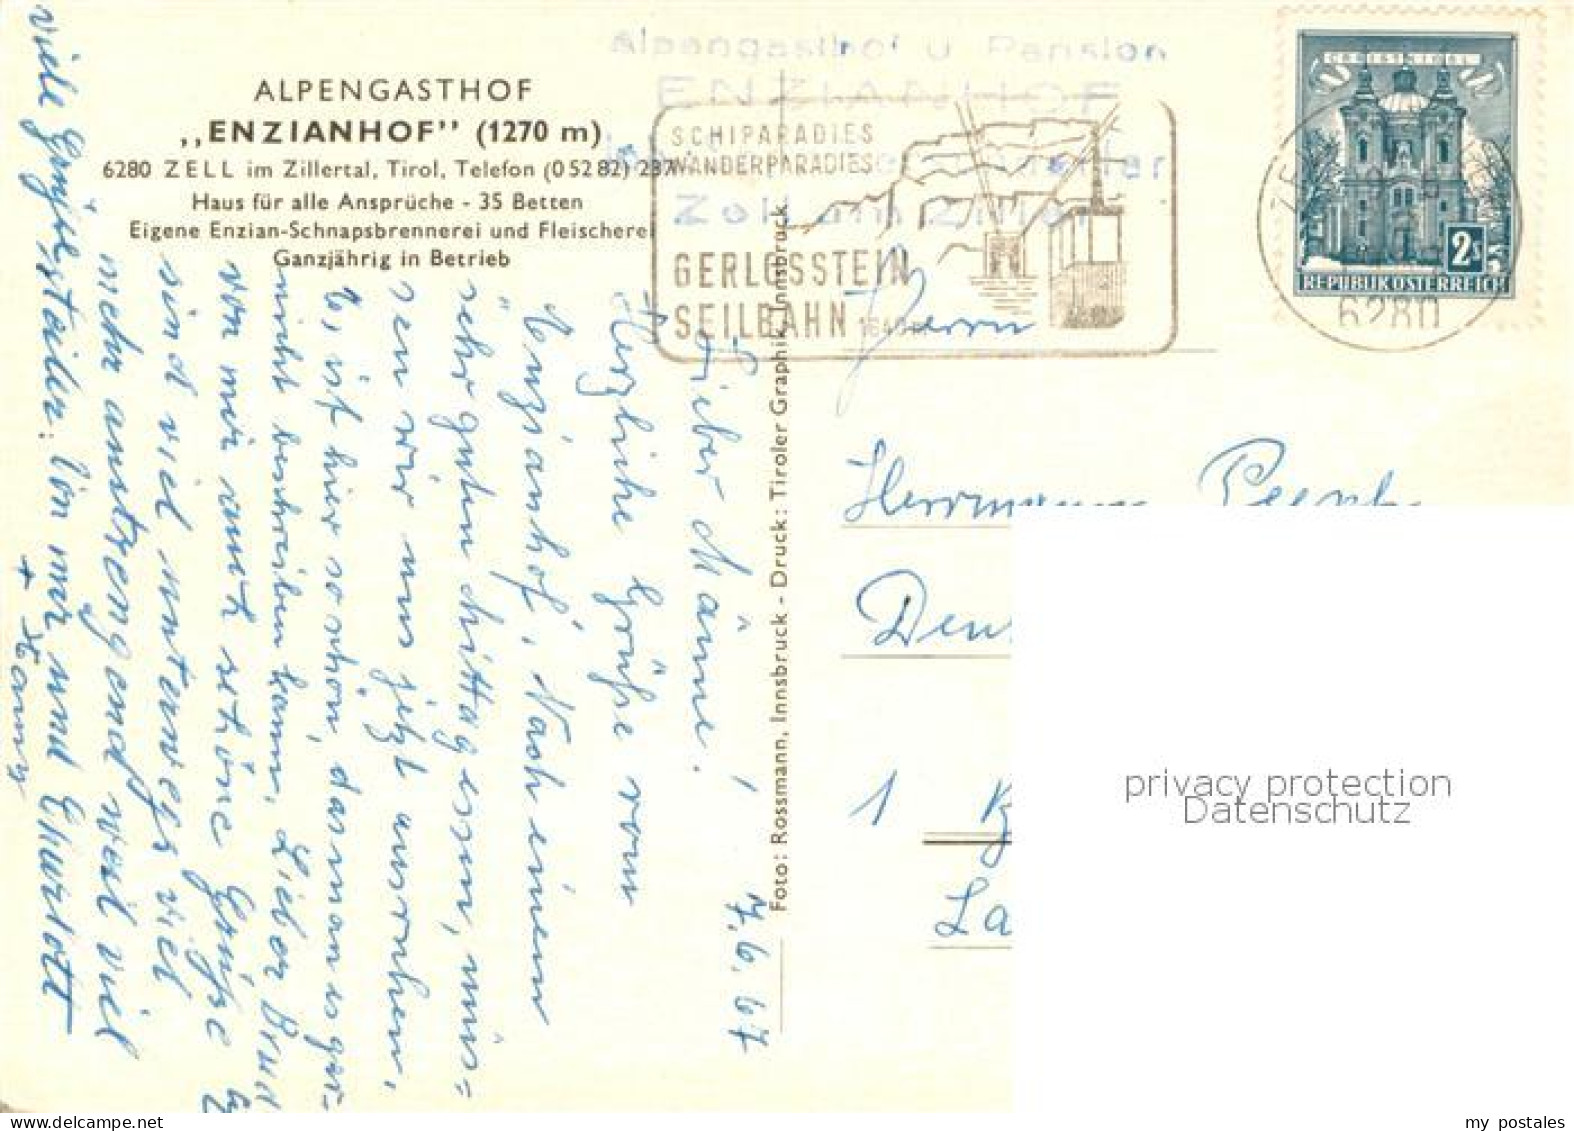 ALPENGASTHOF
„ENZIANHOF" (1270 m)
6280 ZELL im Zillertal, Tirol, Telefon (05282) 237
Haus für alle Ansprüche - 35 Betten
Eigene Enzian-Schnapsbrennerei und Fleischerei
Ganzjährig in Betrieb
Alpengasthof u. Pension
ENZIANHOF
Zell am Ziller
SCHIPARADIES
WANDERPARADIES
GERLOSSTEIN
SEILBAHN
CHRISTKINDL
2 S
REPUBLIK ÖSTERREICH
6280
Foto: Rossmann, Innsbruck - Druck: Tiroler Graphik, Innsbruck
7.6.67
Lieber Männe!
Herzliche Grüße vom
Enzianhof. Nach einem
sehr guten Mittagessen, müs=
sen wir uns jetzt ausruhen.
Es ist hier so schön, das man es gar=
nicht beschreiben kann. Lieber
von mir auch schöne Grüße
sind viel unterwegs viel
mehr anstrengend weil viel
viele
Von mir und
Herrn
Herrmann
1
La
privacy protection
Datenschutz
my postales